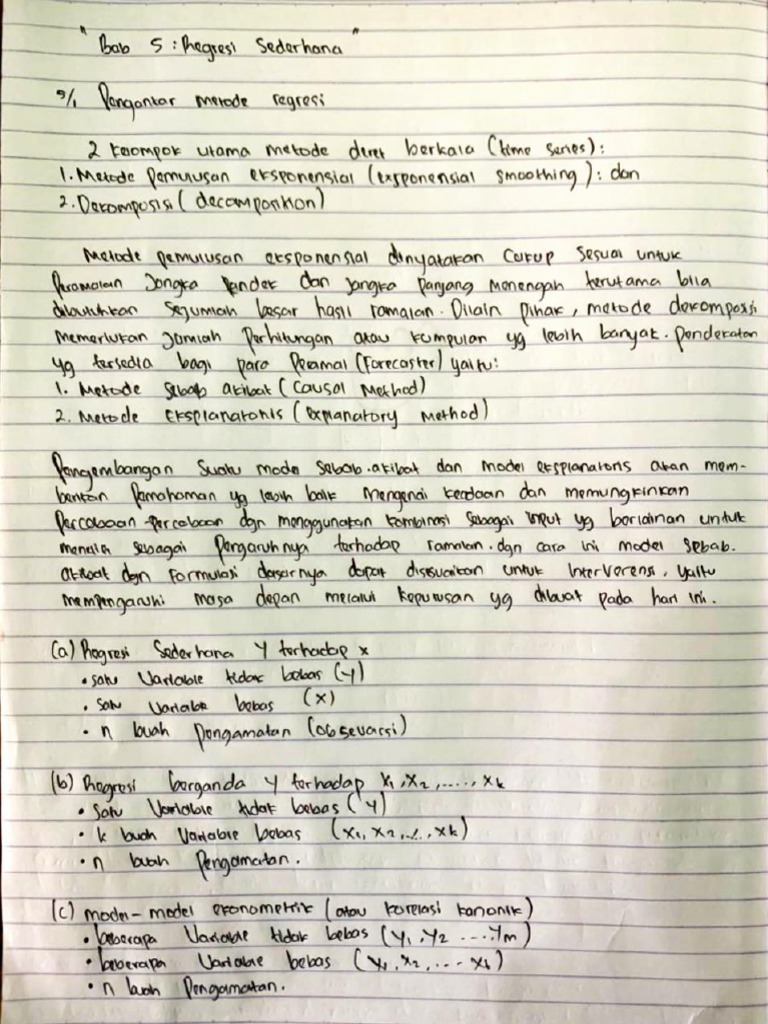 " Bab 5 : Regresi Sederhana "
5/1 Pengantar metode regresi
2 kelompok utama metode deret berkala (time series) :
1. Metode pemulusan eksponensial (exponensial smoothing) : dan
2. Dekomposisi (decomposition)
Metode pemulusan eksponensial dinyatakan cukup sesuai untuk
Peramalan Jangka Pendek dan jangka panjang menengah terutama bila
dibutuhkan sejumlah besar hasil ramalan. Dilain pihak, metode dekomposisi
memerlukan Jumlah Perhitungan atau kumpulan yg lebih banyak. pendekatan
yg tersedia bagi para Peramal (Forecaster) yaitu:
1. Metode sebab akibat (Causal Method)
2. Metode eksplanatoris (explanatory method)
Pengembangan Suatu model Sebab-akibat dan model eksplanatoris akan mem-
berikan Pemahaman yg lebih baik mengenai keadaan dan memungkinkan
Percobaan-Percobaan dgn menggunakan kombinasi sebagai input yg berlainan untuk
menelik sebagai Pengaruhnya terhadap ramalan. dgn cara ini model sebab-
akibat dgn formulasi dasarnya dapat disesuaikan untuk interverensi, yaitu
mempengaruhi masa depan melalui keputusan yg dibuat pada hari ini.
(a) Regresi Sederhana Y terhadap x
• satu Variable tidak bebas (Y)
• satu Variable bebas (x)
• n buah Pengamatan (observarsi)
(b) Regresi berganda Y terhadap x1, x2, ....., xk
• Satu Variable tidak bebas (Y)
• k buah Variable bebas (x1, x2, ..., xk)
• n buah Pengamatan.
(c) model-model ekonometrik (atau korelasi kanonik)
• beberapa Variable tidak bebas (Y1, Y2 .... Ym)
• beberapa Variable bebas (x1, x2, ... xk)
• n buah Pengamatan.